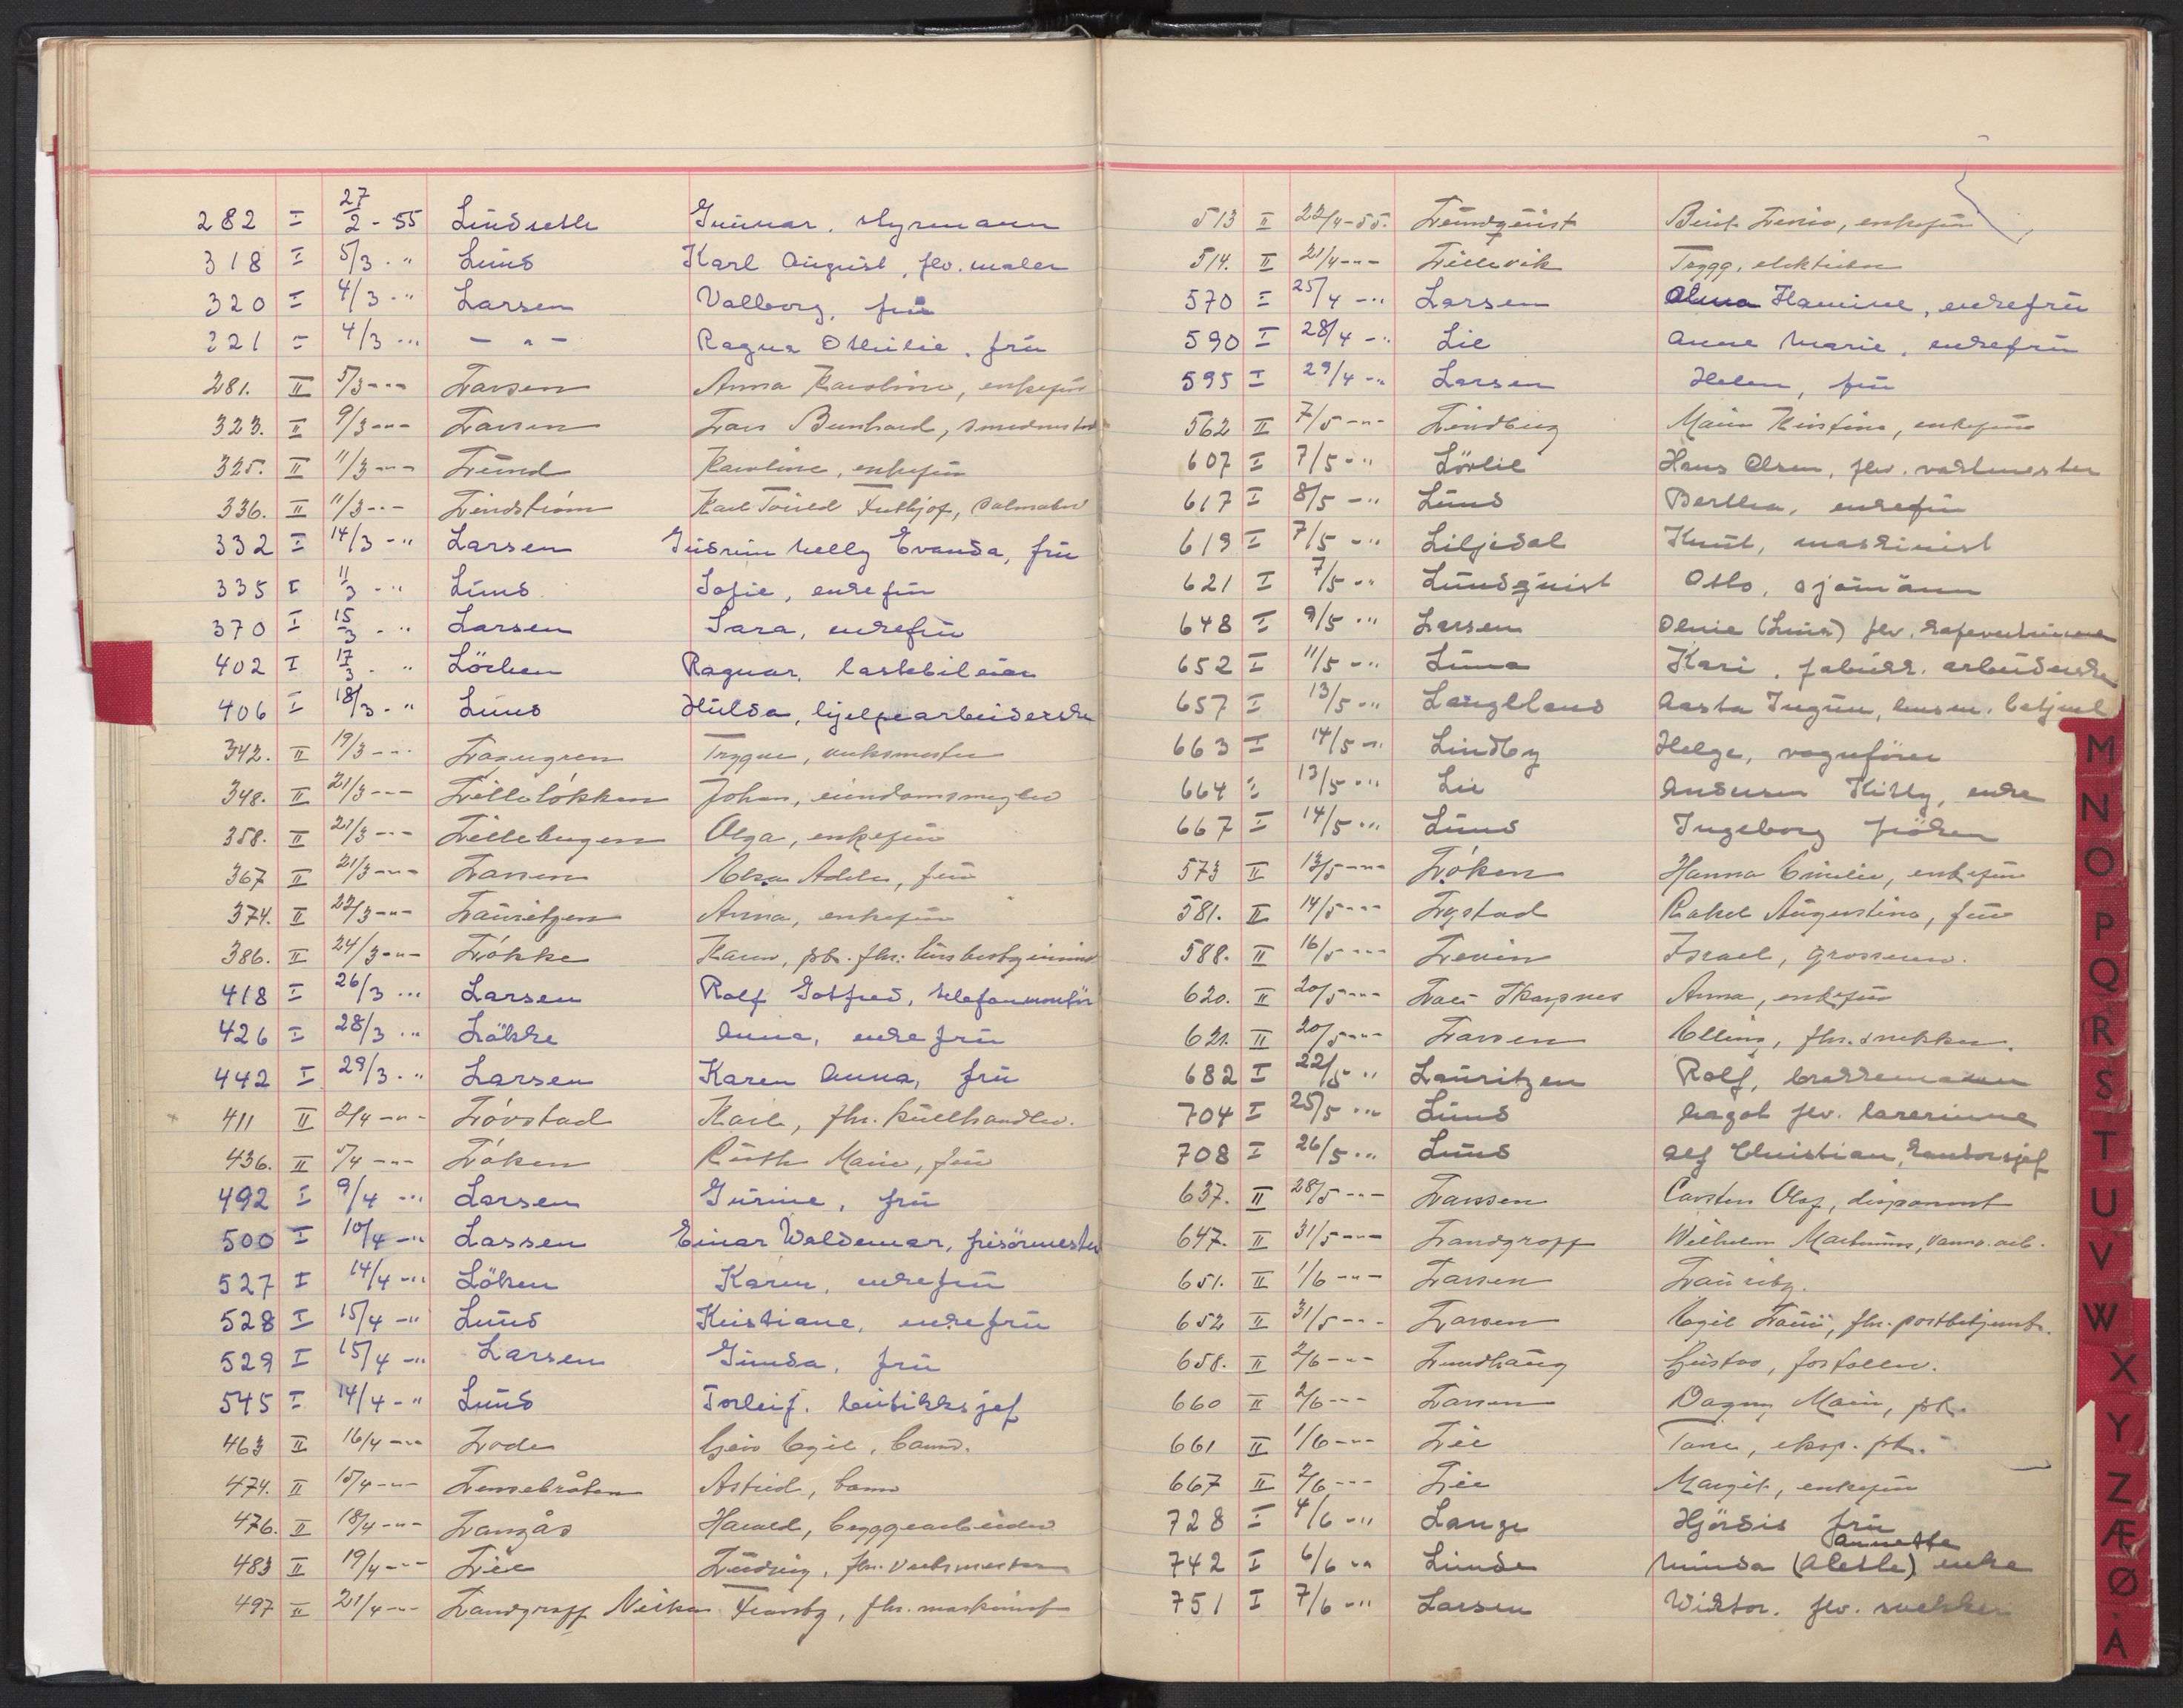 282 I 27/2 - 55 Lindseth Gunnar, styrmann
318 I 5/3 - " Lund Karl August, flv. maler
320 I 4/3 - " Larsen Valborg, frü
321 I 4/3 - " - " - Ragna Othilie, frü
281. II 5/3 - " - Larsen Anna Karoline, enkefrü
323. II 9/3 - " - Larsen Lars Bernhard, smedmester
325. II 11/3 - " - Lünd Karoline, enkefrü
336. II 11/3 - " - Lindström Karl Fritjof,
332 I 14/3 - " Larsen Güdrün Nelly Evanda, frü
335 I 11/3 - " Lünd Sofie, enkefrü
370 I 15/3 - " Larsen Sara, enkefrü
402 I 17/3 - " Löchen Ragnar, lastebileier
406 I 18/3 - " Lünd Hülda, hjelpearbeiderske
342. II 19/3 - " - Laxugren Trygve,
348. II 21/3 - " - Lilleløkken Johan, eiendomsmegler
358. II 21/3 - " - Lillebergen Olga, enkefrü
367 II 21/3 - " - Larsen Adele, frü
374. II 22/3 - " - Laüritzen Anna, enkefrü
386. II 24/3 - " - Løkke Karen,
418 I 26/3 - " Larsen Rolf Gotfred, telefonmontör
426 I 28/3 - " Løkke Anna, enkefrü
442 I 29/3 - " Larsen Karen Anna, frü
411 II 2/4 - " - Løvstad Karl, fhv. küllhandler.
436. II 5/4 - " - Løken Rüth Marie, frü
492 I 9/4 - " Larsen Gürine, frü
500 I 10/4 - " Lassen Einar Waldemar, frisörmester
527 I 14/4 - " Löken Karen, enkefrü
528 I 15/4 - " Lünd Kristiane, enkefrü
529 I 15/4 - " Larsen Günda, frü
545 I 14/4 - " Lünd Torleif. bütikksjef
463 II 16/4 - " - Lode Geir Egil, barn.
474. II 15/4 - " - Lensebråten Astrid, barn
476. II 18/4 - " - Langås Harald, byggearbeider
483 II 19/4 - " - Lie Lüdvig, fhv. verksmester
497 II 21/4 - " - Landgraff fhv. maskinist
513 II 22/4 - 55. Lündqüist Berit enkefrü
514. II 21/4 - " - Lillevik Trygg, elektriker
570 I 25/4 - " Larsen Alma Hamine, enkefrü
590 I 28/4 - " Lie Anne Marie, enkefrü
595 I 29/4 - " Larsen Helen, frü
562 II 7/5 - " - Lindberg Marie Kristine, enkefrü
607 I 7/5 - " Lövlie Hans Olsen, flv. vaktmester
617 I 8/5 - " Lünd Bertha, enkefrü
619 I 7/5 - " Liljedal Knüt, maskinist
621 I 7/5 - " Lündqüist Otto, sjömann
648 I 9/5 - " Larsen Oline (Lina) flv. kafevertinne
652 I 11/5 - " Lüna Kari, fabrikk. arbeiderske
657 I 13/5 - " Langeland Aasta Ingün, betjent
663 I 14/5 - " Lindby Helge, vognfører
664 I 13/5 - " Lie Andersen Kitty, enke
667 I 14/5 - " Lünd Ingeborg fröken
573 II 13/5 - " - Løken Hanna Emilie, enkefrü
581. II 14/5 - " - Lystad Rakel Aügüstine, frü
588. II 16/5 - " - Levin Israel, grosserer.
620. II 20/5 - " - Anna, enkefrü
621. II 20/5 - " - Larsen Elling, fhv. snekker.
682 I 22/5 - " Laüritzen Rolf, brekkemaker
704 I 25/5 - " Lünd Magot flv. lærerinne
708 I 26/5 - " Lünd Alf Christian, kontorsjef
637. II 28/5 - " - Larssen Carsten Olaf, disponent
647. II 31/5 - " - Landgraff Wilhelm
651. II 1/6 - " - Larsen Laüritz.
652 II 31/5 - " - Larsen Egil fhv. postbetjent.
658. II 2/6 - " - Lündhaüg Güstav, forfatter.
660 II 2/6 - " - Larsen Dagny Marie, frk.
661 II 1/6 - " - Lie eksp. frk.
667 II 2/6 - " - Lie Margit, enkefrü
728 I 4/6 - " Lange Hjördis frü
Annette
742 I 6/6 - " Linde Minda (Alette) enke
751 I 7/6 - " Larsen Wiktor. flv. snekker
M
N
O
P
Q
R
S
T
U
V
W
X
Y
Z
Æ
Ø
Å